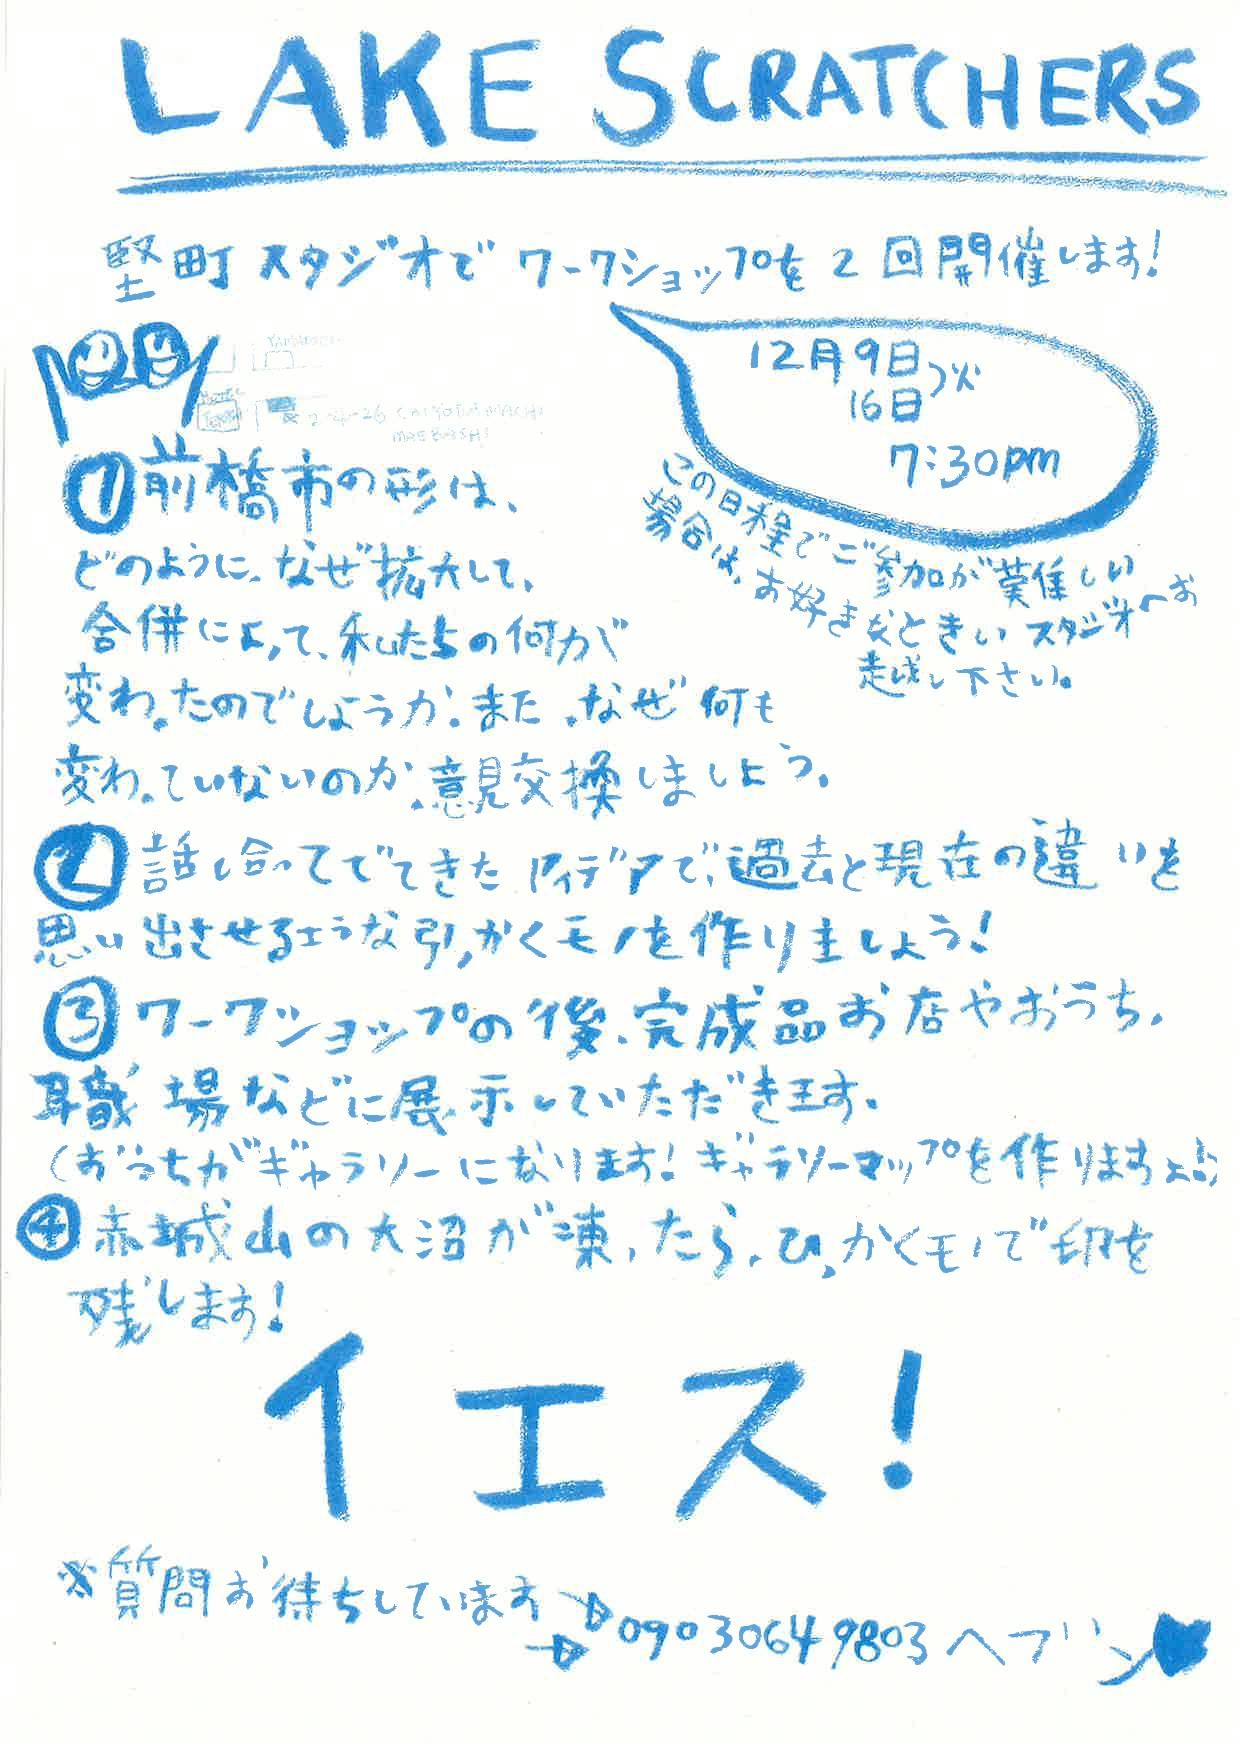 LAKE SCRATCHERS
堅町スタジオでワークショップを2回開催します!
12月9日
16日 火
7:30pm
この日程でご参加が難しい
場合は、お好きなときいスタジオへお
越し下さい。
YAMAMOTO
HOTEL
2-4-26 CHIYODAMACHI
MAEBASHI
①前橋市の形は、
どのように、なぜ拡大して、
合併によって、私たちの何が
変わったのでしょうか。また、なぜ何も
変わっていないのか、意見交換しましょう。
②話し合ってでてきたアイデアで、過去と現在の違いを
思い出させるような引っかくモノを作りましょう!
③ワークショップの後、完成品お店やおうち、
職場などに展示していただきます。
(おうちがギャラリーになります!ギャラリーマップを作りますよ!)
④赤城山の大沼が凍ったら、ひっかくモノで印を
残します!
イエス!
※質問お待ちしています
09030649803 ヘブン